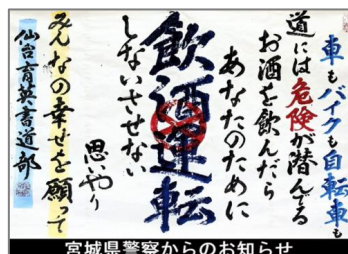 車もバイクも自転車も
道には危険が潜んでる
お酒を飲んだら
あなたのために
飲酒運転
しないさせない
思いやり
みんなの幸せを願って
仙台育英書道部
宮城県警察からのお知らせ